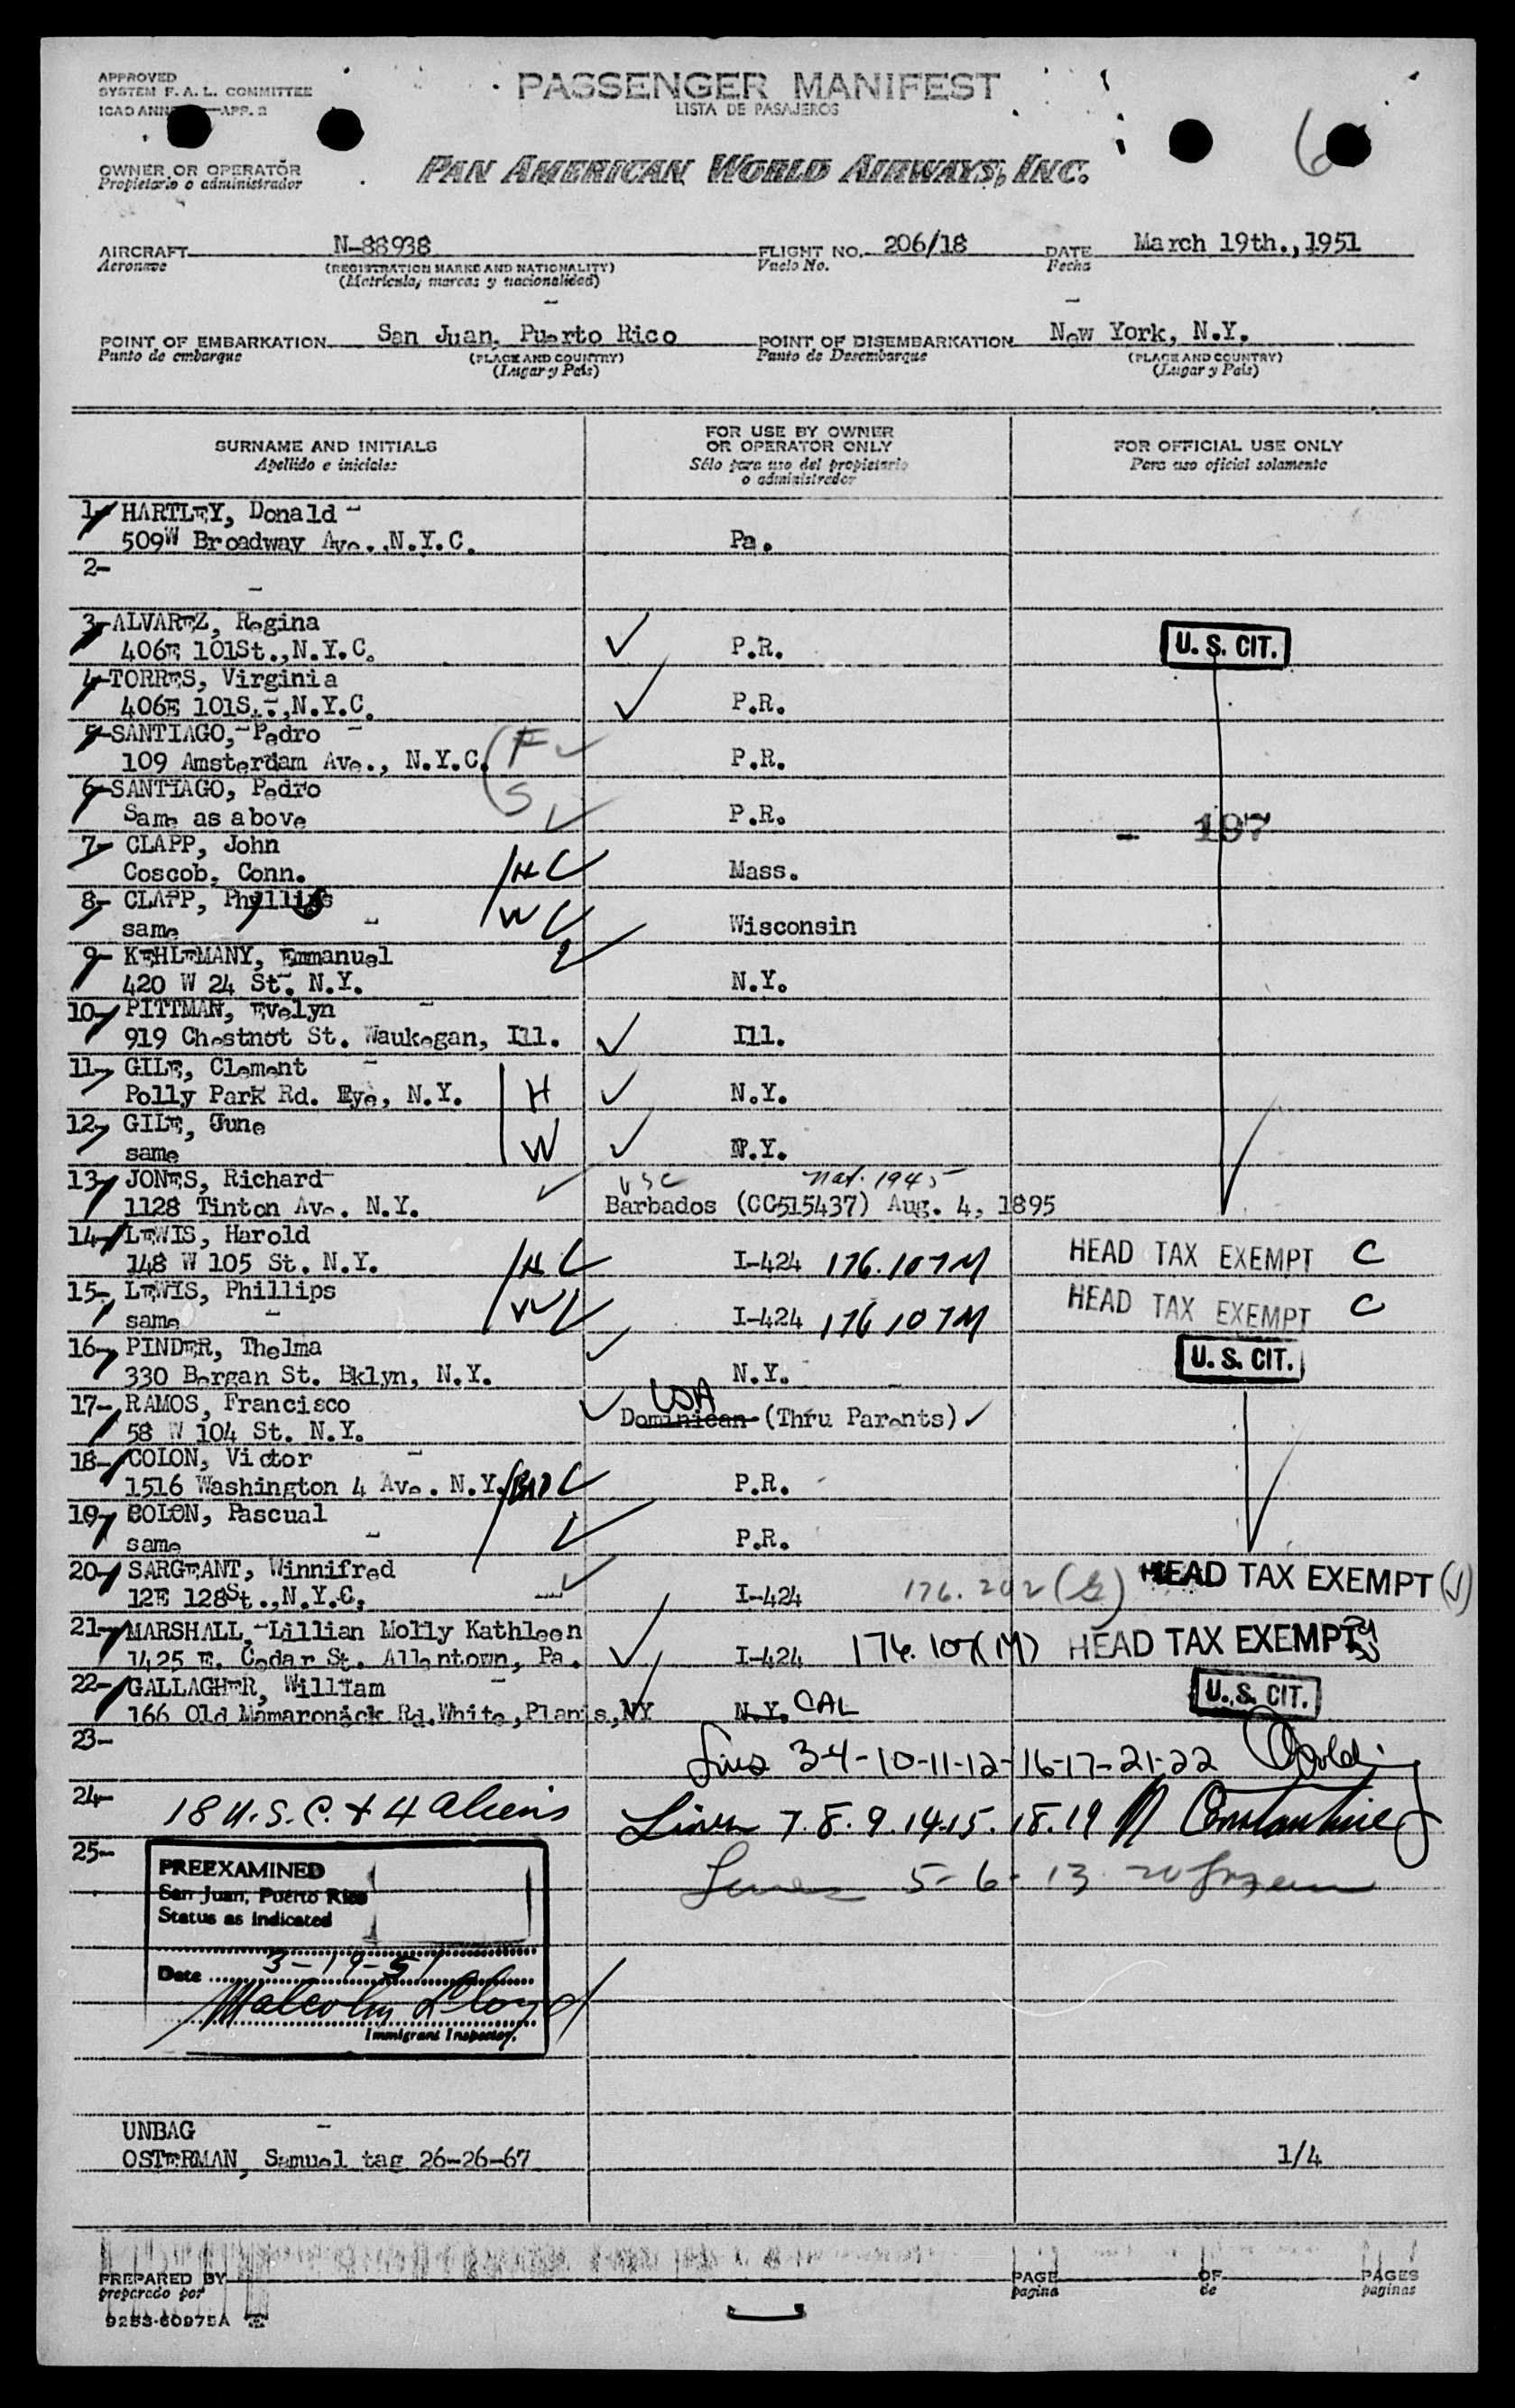 APPROVED
SYSTEM F. A. L. COMMITTEE
ICAO ANN APP. 2
PASSENGER MANIFEST
LISTA DE PASAJEROS
6
OWNER OR OPERATOR
Propietario o administrador
PAN AMERICAN WORLD AIRWAYS, INC.
AIRCRAFT N-88938 FLIGHT NO. 206/18 DATE March 19th.,1951
Aeronave (REGISTRATION MARKS AND NATIONALITY) Vuelo No. Fecha
(Matricula, marcas y nacionalidad)
POINT OF EMBARKATION San Juan, Puerto Rico POINT OF DISEMBARKATION New York, N.Y.
Punto de embarque (PLACE AND COUNTRY) Punto de Desembarque (PLACE AND COUNTRY)
(Lugar y País) (Lugar y País)
SURNAME AND INITIALS
Apellido e iniciales
FOR USE BY OWNER
OR OPERATOR ONLY
Sólo para uso del propietario
o administrador
FOR OFFICIAL USE ONLY
Para uso oficial solamente
1- HARTLEY, Donald
509W Broadway Ave.,N.Y.C. Pa.
2-
3-ALVAREZ, Regina
406E 101St.,N.Y.C. P.R. U. S. CIT.
4-TORRES, Virginia
406E 101S.,N.Y.C. P.R.
5-SANTIAGO, Pedro F
109 Amsterdam Ave., N.Y.C. P.R.
6-SANTIAGO, Pedro S
Same as above P.R. - 197
7- CLAPP, John
Coscob, Conn. H Mass.
8- CLAPP, Phyllis
same W Wisconsin
9- KEHLEMANY, Emmanuel
420 W 24 St. N.Y. N.Y.
10- PITTMAN, Evelyn
919 Chestnot St. Waukegan, Ill. Ill.
11- GILE, Clement
Polly Park Rd. Rye, N.Y. H N.Y.
12- GILE, June
same W N.Y.
13- JONES, Richard USC nat. 1945
1128 Tinton Ave. N.Y. Barbados (CC515437) Aug. 4, 1895
14-LEWIS, Harold
148 W 105 St. N.Y. H I-424 176.107M HEAD TAX EXEMPT C
15- LEWIS, Phillips
same W I-424 176 107M HEAD TAX EXEMPT C
16- PINDER, Thelma
330 Bergan St. Bklyn, N.Y. N.Y. U. S. CIT.
17- RAMOS, Francisco USA
58 W 104 St. N.Y. Dominican (Thru Parents)
18- COLON, Victor
1516 Washington 4 Ave. N.Y. P.R.
19- COLON, Pascual
same P.R.
20- SARGEANT, Winnifred
12E 128St.,N.Y.C. I-424 176.202 HEAD TAX EXEMPT
21- MARSHALL, Lillian Molly Kathleen
1425 E. Cedar St. Allentown, Pa. I-424 176.107(M) HEAD TAX EXEMPT
22- GALLAGHER, William
166 Old Mamaroneck Rd.White,Plants,NY N.Y. CAL U. S. CIT.
23- Lines 3-4-10-11-12-16-17-21-22
24- 18 U.S.C. + 4 aliens Lines 7.8.9.14.15.18.19 Constantine
25- Lines 5-6-13 20
PREEXAMINED
San Juan, Puerto Rico
Status as Indicated
Date 3-19-51
Malcolm Lloyd
Immigrant Inspector.
UNBAG
OSTERMAN, Samuel tag 26-26-67 1/4
PREPARED BY PAGE OF PAGES
preparado por pagina de paginas
9253-60975A